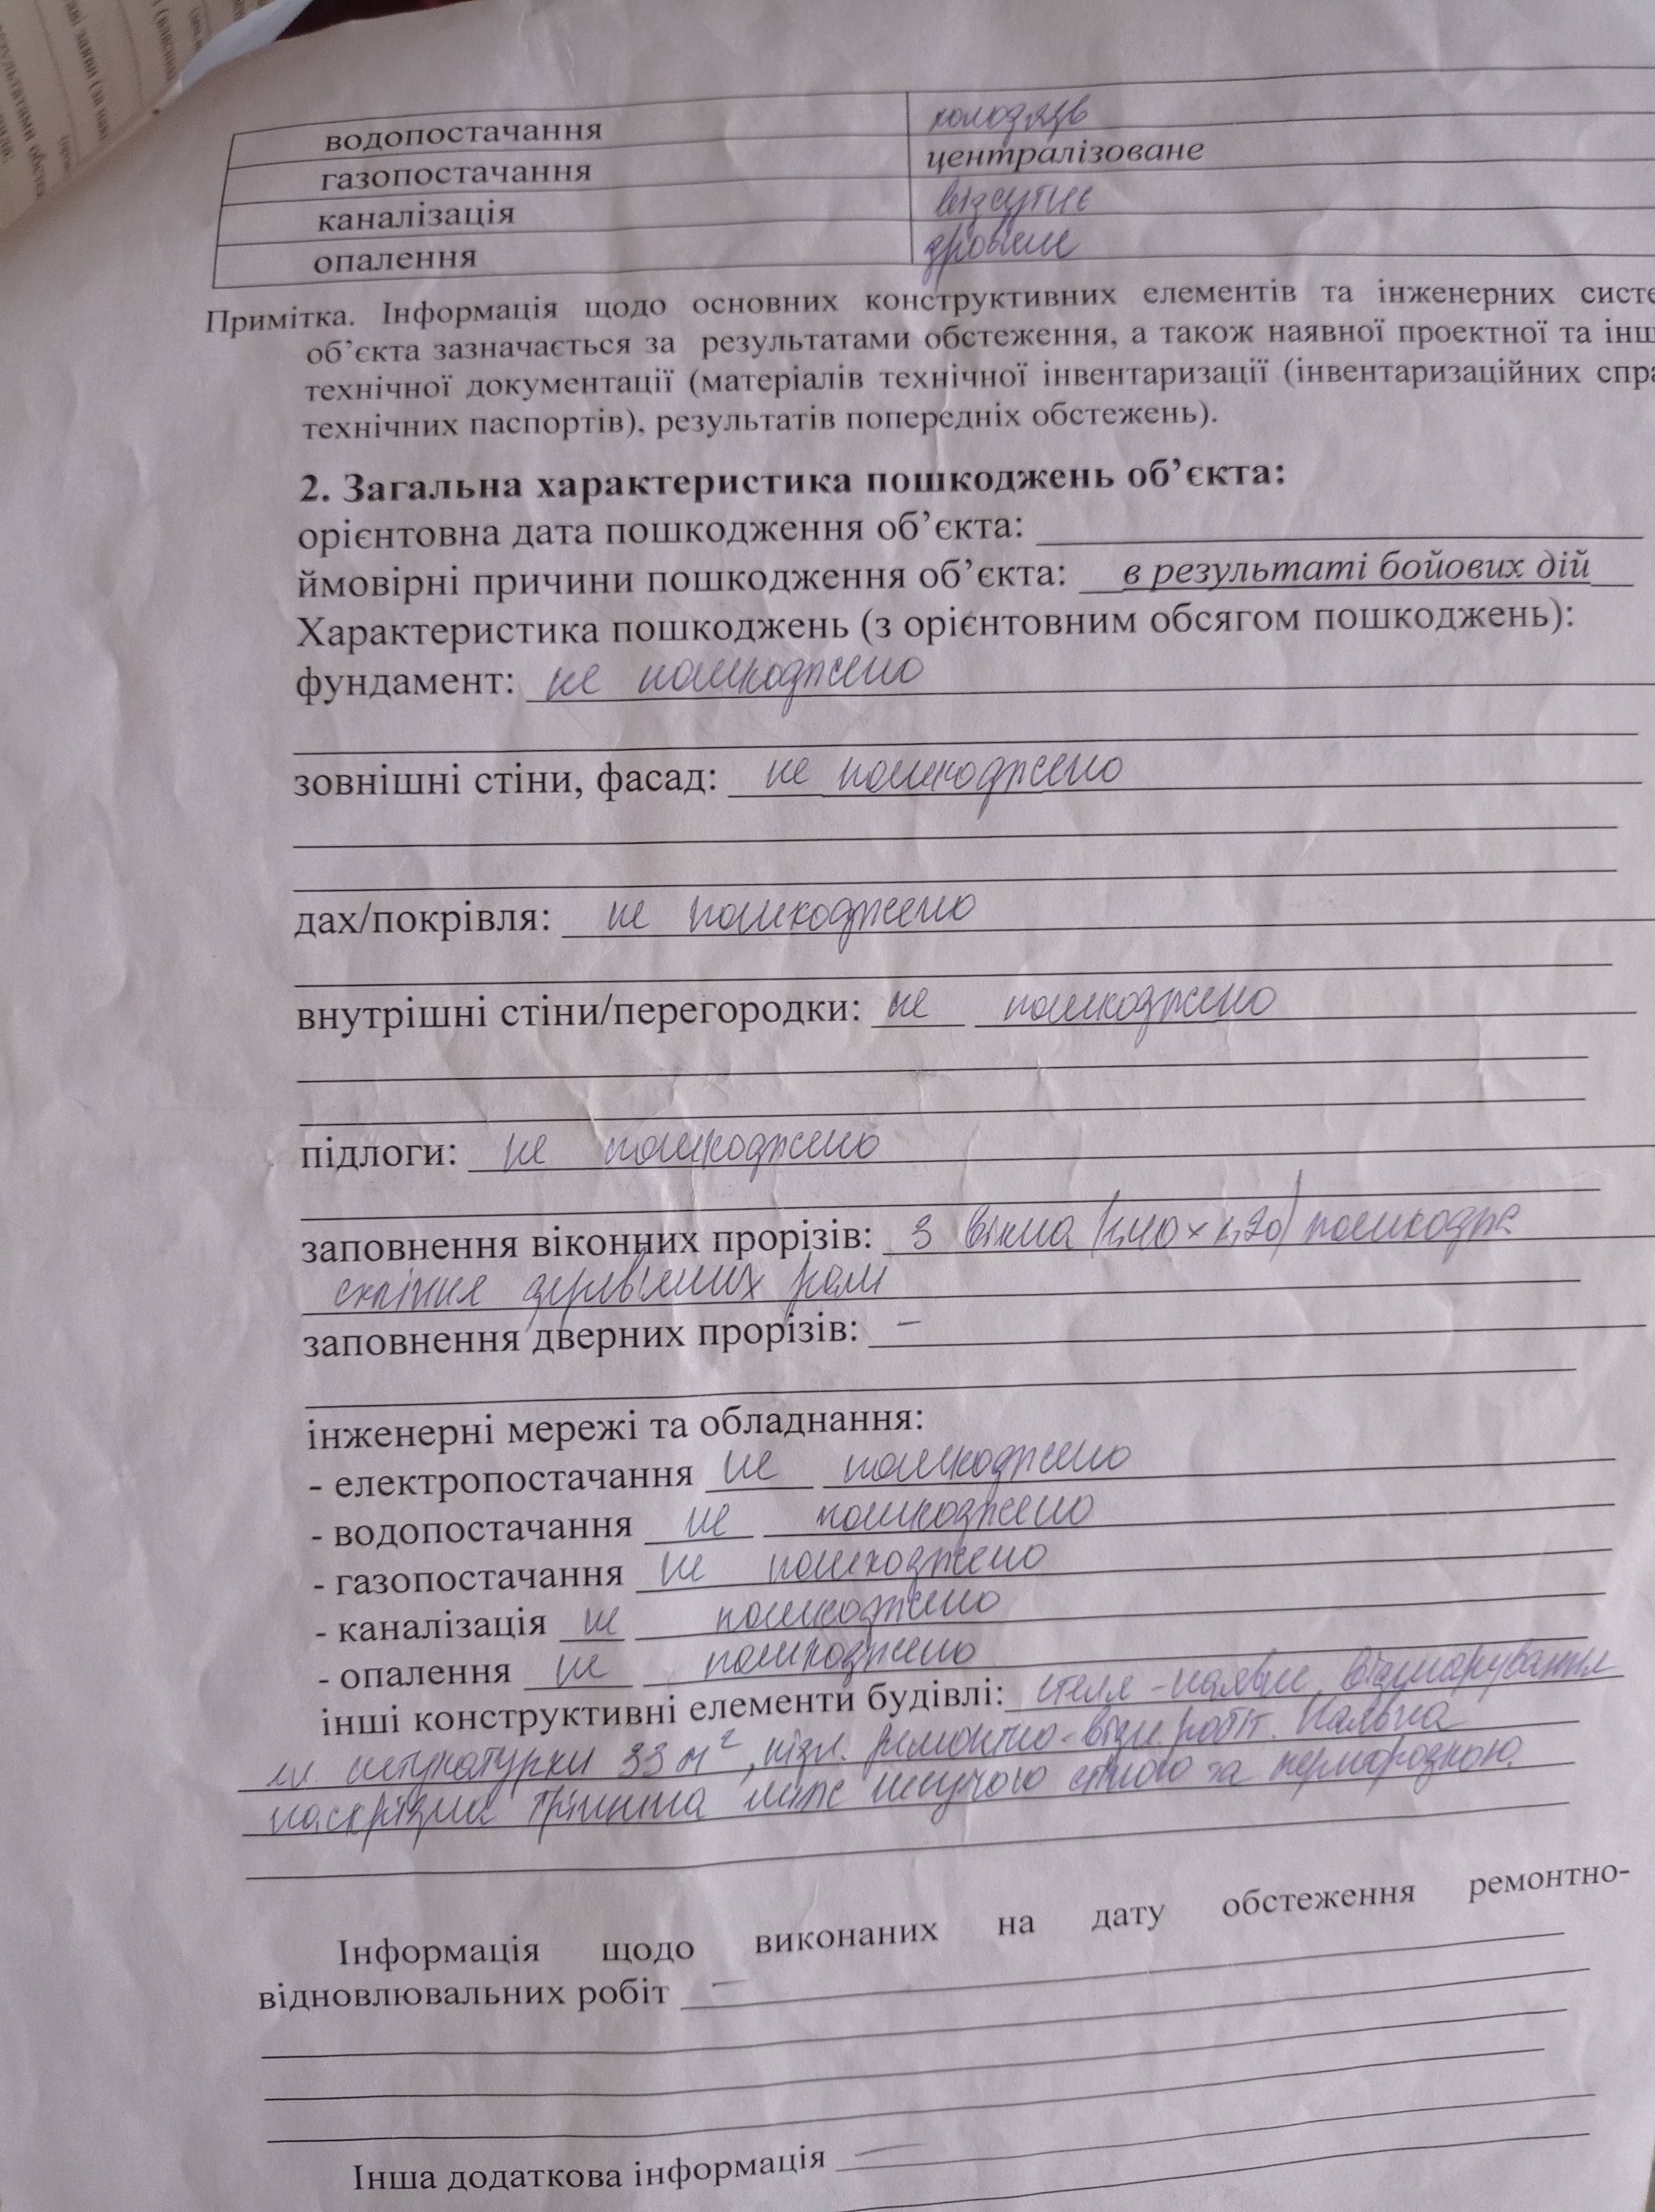 водопостачання колодязь
газопостачання централізоване
каналізація відсутнє
опалення дров'яне
Примітка. Інформація щодо основних конструктивних елементів та інженерних систе
об'єкта зазначається за результатами обстеження, а також наявної проектної та інш
технічної документації (матеріалів технічної інвентаризації (інвентаризаційних спра
технічних паспортів), результатів попередніх обстежень).
2. Загальна характеристика пошкоджень об'єкта:
орієнтовна дата пошкодження об'єкта:
ймовірні причини пошкодження об'єкта: в результаті бойових дій
Характеристика пошкоджень (з орієнтовним обсягом пошкоджень):
фундамент: не пошкоджено
зовнішні стіни, фасад: не пошкоджено
дах/покрівля: не пошкоджено
внутрішні стіни/перегородки: не пошкоджено
підлоги: не пошкоджено
заповнення віконних прорізів: 3 вікна пошкодж
скління дерев'яних рам
заповнення дверних прорізів: –
інженерні мережі та обладнання:
- електропостачання не пошкоджено
- водопостачання не пошкоджено
- газопостачання не пошкоджено
- каналізація не пошкоджено
- опалення не пошкоджено
інші конструктивні елементи будівлі: стеля - наявне відшарування
штукатурки 33 м², ремонтно-відн. робіт. Наявна
наскрізна тріщина між несучою стіною та перегородкою.
Інформація щодо виконаних на дату обстеження ремонтно-
відновлювальних робіт –
Інша додаткова інформація –